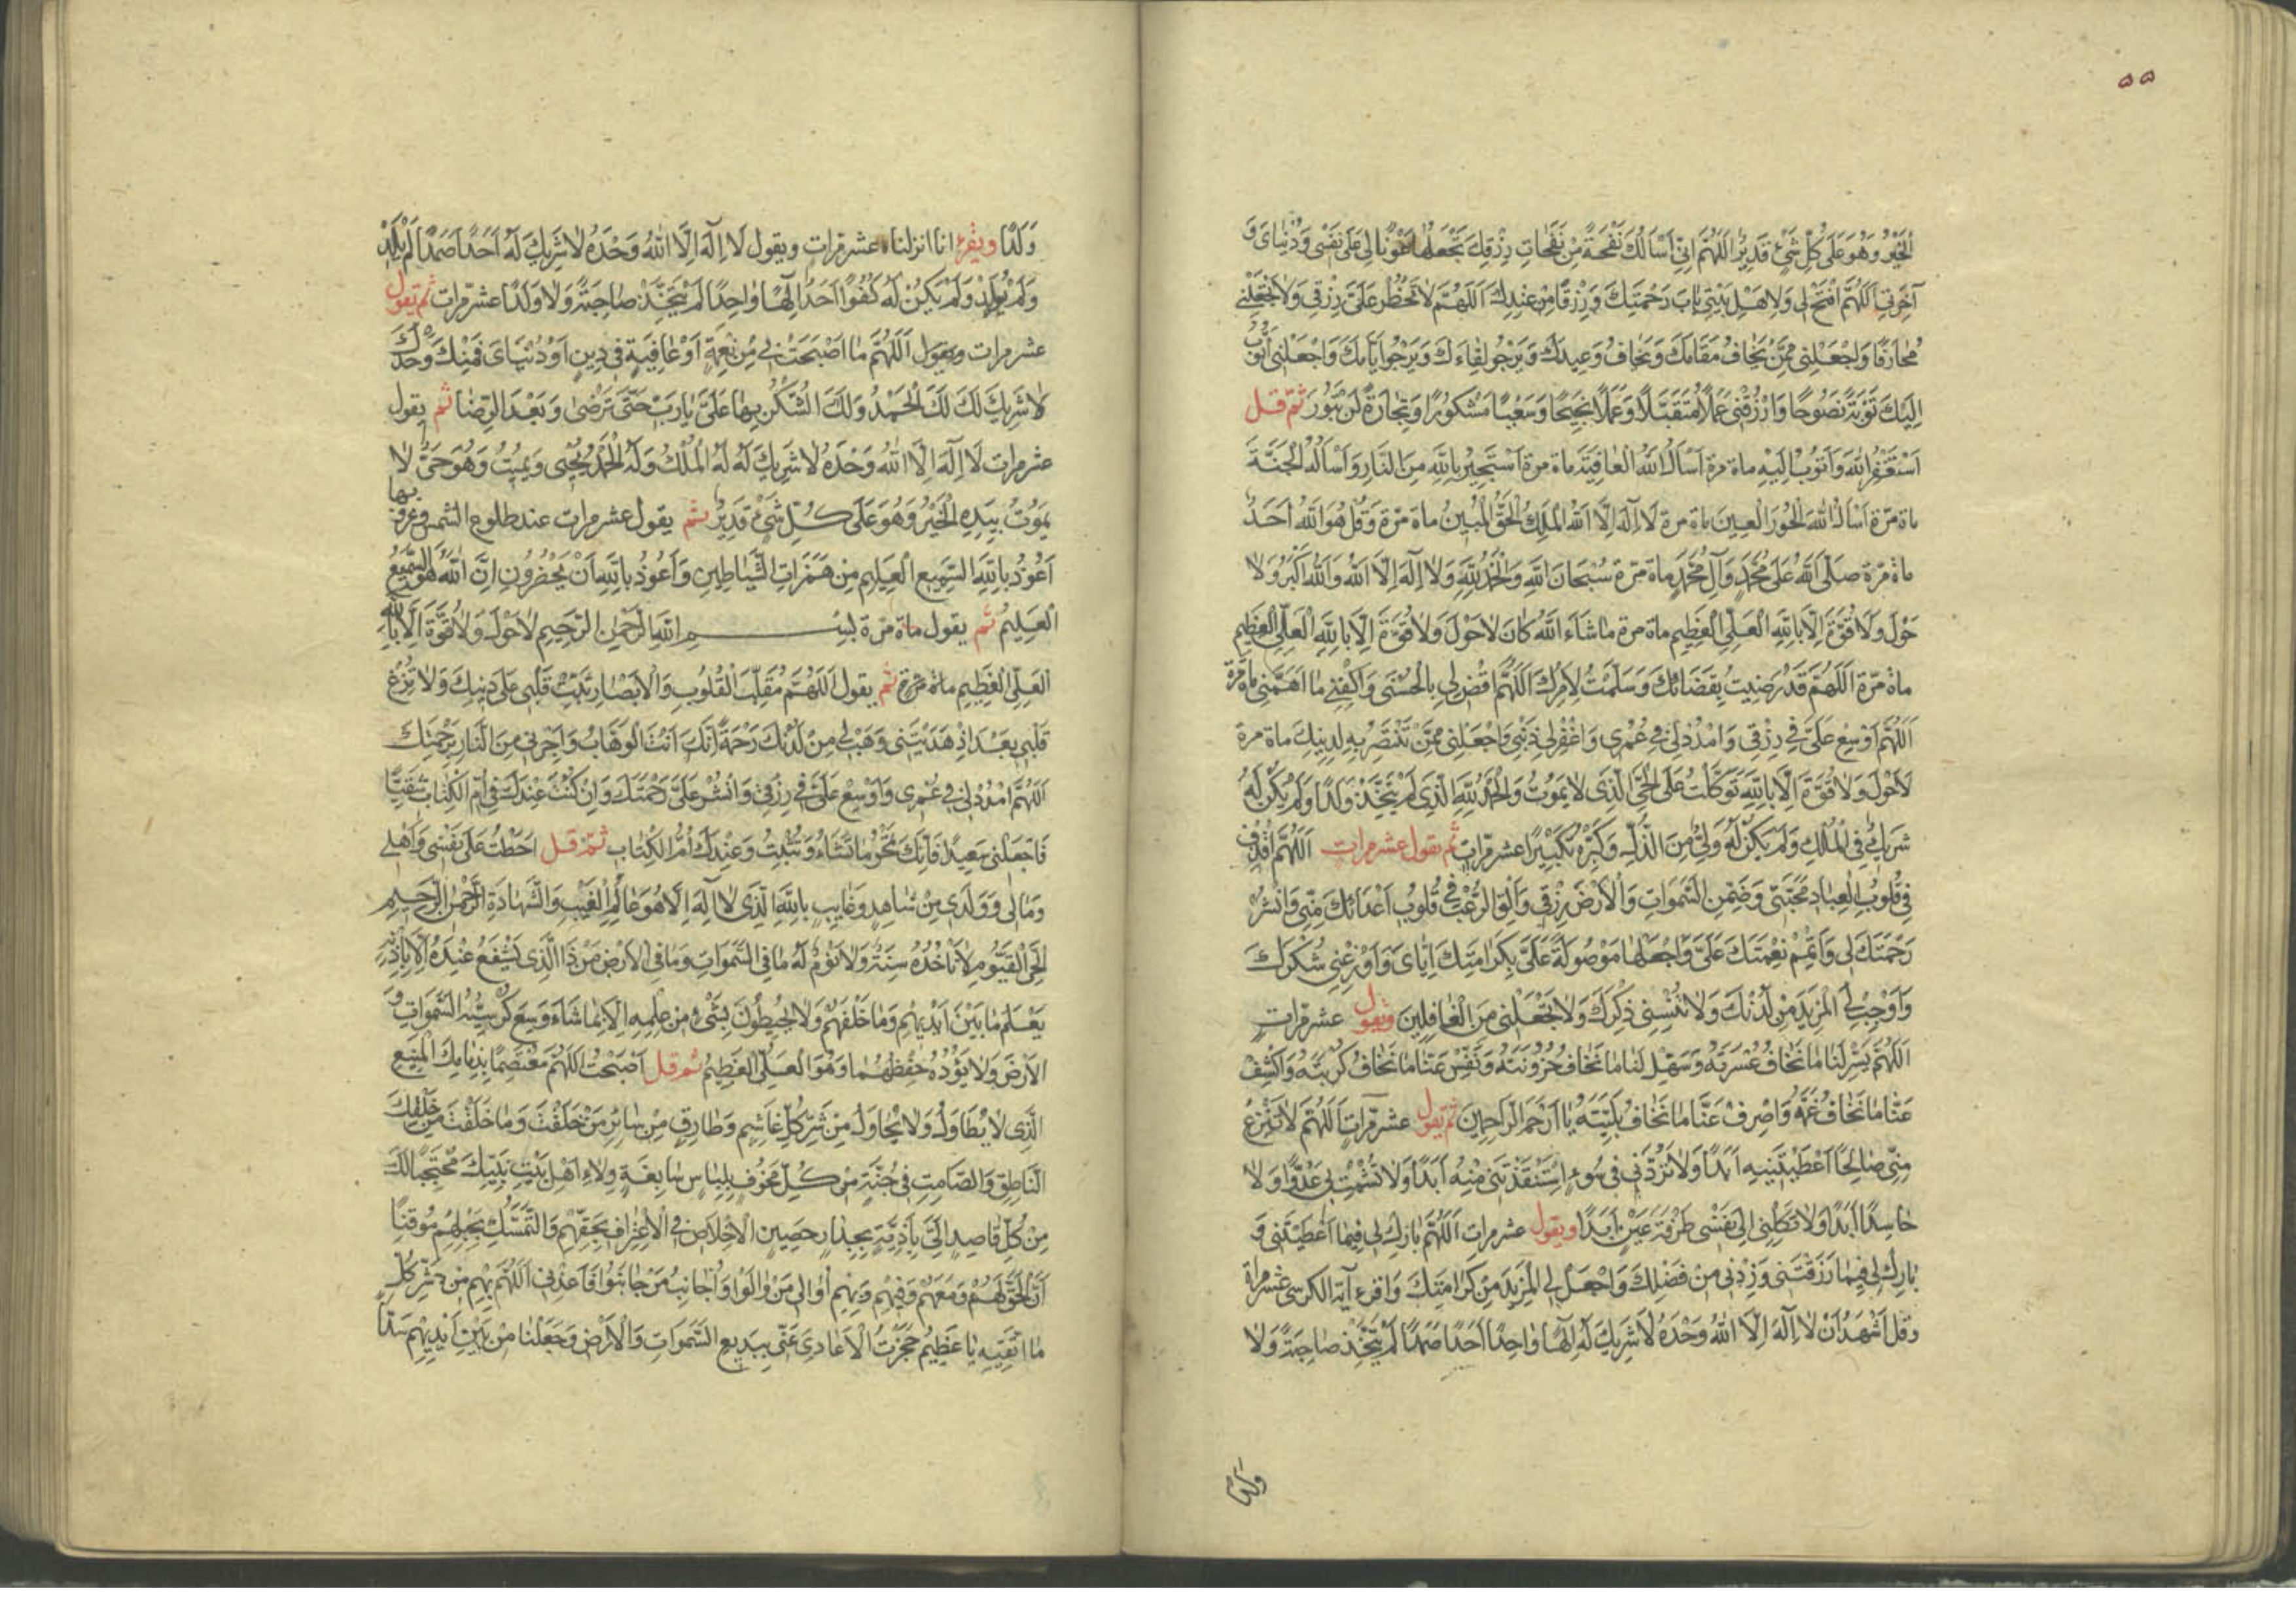 ٥٥
اَلْخَيْرُ وَهُوَ عَلَى كُلِّ شَيْءٍ قَدِيرٌ اَللّهُمَّ اِنّي اَسْاَلُكَ نَفْحَةً مِنْ نَفَحَاتِ رِزْقِكَ تَجْعَلُهَا عَوْنًا لِي عَلَى نَفْسِي وَدُنْيَايَ وَ
آخِرَتِي اَللّهُمَّ افْتَحْ لِي وَلِاَهْلِ بَيْتِي بَابَ رَحْمَتِكَ وَرِزْقًا مِنْ عِنْدِكَ اَللّهُمَّ لا تَحْظُرْ عَلَيَّ رِزْقِي وَلا تَجْعَلْنِي
مُحَارَفًا وَاجْعَلْنِي مِمَّنْ يَخَافُ مَقَامَكَ وَيَخَافُ وَعِيدَكَ وَيَرْجُو لِقَاءَكَ وَيَرْجُو اَيَّامَكَ وَاجْعَلْنِي اَتُوبُ
اِلَيْكَ تَوْبَةً نَصُوحًا وَارْزُقْنِي عَمَلًا مُتَقَبَّلًا وَعَمَلًا نَجِيحًا وَسَعْيًا مَشْكُورًا وَتِجَارَةً لَنْ تَبُورَ ثمّ قل
اَسْتَغْفِرُ اللهَ وَاَتُوبُ اِلَيْهِ ماة مرة اَسْاَلُ اللهَ الْعَافِيَةَ ماة مرة اَسْتَجِيرُ بِاللهِ مِنَ النَّارِ وَاَسْاَلُهُ الْجَنَّةَ
ماة مرّة اَسْاَلُ اللهَ الْحُورَ الْعِينَ ماة مرة لا اِلهَ اِلَّا اللهُ الْمَلِكُ الْحَقُّ الْمُبِينُ ماة مرّة وَقُلْ هُوَ اللهُ اَحَدٌ
ماة مرّة صَلَّى اللهُ عَلَى مُحَمَّدٍ وَآلِ مُحَمَّدٍ ماة مرّة سُبْحَانَ اللهِ وَالْحَمْدُ لِلّهِ وَلا اِلهَ اِلَّا اللهُ وَاللهُ اَكْبَرُ وَلا
حَوْلَ وَلا قُوَّةَ اِلَّا بِاللهِ الْعَلِيِّ الْعَظِيمِ ماة مرة مَا شَاءَ اللهُ كَانَ لا حَوْلَ وَلا قُوَّةَ اِلَّا بِاللهِ الْعَلِيِّ الْعَظِيمِ
ماة مرّة اَللّهُمَّ قَدْ رَضِيتُ بِقَضَائِكَ وَسَلَّمْتُ لِاَمْرِكَ اَللّهُمَّ اقْضِ لِي بِالْحُسْنَى وَاكْفِنِي مَا اَهَمَّنِي ماة مرّة
اَللّهُمَّ اَوْسِعْ عَلَيَّ فِي رِزْقِي وَامْدُدْ لِي فِي عُمْرِي وَاغْفِرْ لِي ذَنْبِي وَاجْعَلْنِي مِمَّنْ تَنْتَصِرُ بِهِ لِدِينِكَ ماة مرة
لا حَوْلَ وَلا قُوَّةَ اِلَّا بِاللهِ تَوَكَّلْتُ عَلَى الْحَيِّ الَّذِي لا يَمُوتُ وَالْحَمْدُ لِلّهِ الَّذِي لَمْ يَتَّخِذْ وَلَدًا وَلَمْ يَكُنْ لَهُ
شَرِيكٌ فِي الْمُلْكِ وَلَمْ يَكُنْ لَهُ وَلِيٌّ مِنَ الذُّلِّ وَكَبِّرْهُ تَكْبِيرًا عشر مرّات ثم يقول عشر مرات اَللّهُمَّ اقْذِفْ
فِي قُلُوبِ الْعِبَادِ مَحَبَّتِي وَضَمِّنِ السَّمَوَاتِ وَالْاَرْضَ رِزْقِي وَاَلْقِ الرُّعْبَ فِي قُلُوبِ اَعْدَائِكَ مِنِّي وَانْشُرْ
رَحْمَتَكَ لِي وَاَتْمِمْ نِعْمَتَكَ عَلَيَّ وَاجْعَلْهَا مَوْصُولَةً عَلَيَّ بِكَرَامَتِكَ اِيَّايَ وَاَوْزِعْنِي شُكْرَكَ
وَاَوْجِبْ لِيَ الْمَزِيدَ مِنْ لَدُنْكَ وَلا تُنْسِنِي ذِكْرَكَ وَلا تَجْعَلْنِي مِنَ الْغَافِلِينَ ويقول عشر مرّات
اَللّهُمَّ يَسِّرْ لَنَا مَا نَخَافُ عُسْرَتَهُ وَسَهِّلْ لَنَا مَا نَخَافُ حُزُونَتَهُ وَنَفِّسْ عَنَّا مَا نَخَافُ كُرْبَتَهُ وَاكْشِفْ
عَنَّا مَا نَخَافُ غَمَّهُ وَاصْرِفْ عَنَّا مَا نَخَافُ بَلِيَّتَهُ يَا اَرْحَمَ الرَّاحِمِينَ ثم يقول عشر مرّات اَللّهُمَّ لا تَنْزِعْ
مِنِّي صَالِحًا اَعْطَيْتَنِيهِ اَبَدًا وَلا تَرُدَّنِي فِي سُوءٍ اسْتَنْقَذْتَنِي مِنْهُ اَبَدًا وَلا تُشْمِتْ بِي عَدُوًّا وَلا
حَاسِدًا اَبَدًا وَلا تَكِلْنِي اِلَى نَفْسِي طَرْفَةَ عَيْنٍ اَبَدًا ويقول عشر مرات اَللّهُمَّ بَارِكْ لِي فِيمَا اَعْطَيْتَنِي وَ
بَارِكْ لِي فِيمَا رَزَقْتَنِي وَزِدْنِي مِنْ فَضْلِكَ وَاجْعَلْ لِيَ الْمَزِيدَ مِنْ كَرَامَتِكَ واقرء آية الكرسي عشر مراة
وقل اَشْهَدُ اَنْ لا اِلهَ اِلَّا اللهُ وَحْدَهُ لا شَرِيكَ لَهُ اِلهًا وَاحِدًا اَحَدًا صَمَدًا لَمْ يَتَّخِذْ صَاحِبَةً وَلا
وَلَدًا ويقرء انا انزلناه عشر مرات ويقول لا اِلهَ اِلَّا اللهُ وَحْدَهُ لا شَرِيكَ لَهُ اَحَدًا صَمَدًا لَمْ يَلِدْ
وَلَمْ يُولَدْ وَلَمْ يَكُنْ لَهُ كُفُوًا اَحَدٌ اِلهًا وَاحِدًا لَمْ يَتَّخِذْ صَاحِبَةً وَلا وَلَدًا عشر مرات ثم يقول
عشر مرات ويقول اَللّهُمَّ مَا اَصْبَحَتْ بِي مِنْ نِعْمَةٍ اَوْ عَافِيَةٍ فِي دِينٍ اَوْ دُنْيَايَ فَمِنْكَ وَحْدَكَ
لا شَرِيكَ لَكَ لَكَ الْحَمْدُ وَلَكَ الشُّكْرُ بِهَا عَلَيَّ يَا رَبِّ حَتَّى تَرْضَى وَبَعْدَ الرِّضَا ثم يقول
عشر مرات لا اِلهَ اِلَّا اللهُ وَحْدَهُ لا شَرِيكَ لَهُ لَهُ الْمُلْكُ وَلَهُ الْحَمْدُ يُحْيِي وَيُمِيتُ وَهُوَ حَيٌّ لا
يَمُوتُ بِيَدِهِ الْخَيْرُ وَهُوَ عَلَى كُلِّ شَيْءٍ قَدِيرٌ ثم يقول عشر مرات عند طلوع الشمس وغروبها
اَعُوذُ بِاللهِ السَّمِيعِ الْعَلِيمِ مِنْ هَمَزَاتِ الشَّيَاطِينِ وَاَعُوذُ بِاللهِ اَنْ يَحْضُرُونِ اِنَّ اللهَ هُوَ السَّمِيعُ
الْعَلِيمُ ثم يقول ماة مرّة بِسْمِ اللهِ الرَّحْمنِ الرَّحِيمِ لا حَوْلَ وَلا قُوَّةَ اِلَّا بِاللهِ
الْعَلِيِّ الْعَظِيمِ ماة مرة ثم يقول اَللّهُمَّ مُقَلِّبَ الْقُلُوبِ وَالْاَبْصَارِ ثَبِّتْ قَلْبِي عَلَى دِينِكَ وَلا تُزِغْ
قَلْبِي بَعْدَ اِذْ هَدَيْتَنِي وَهَبْ لِي مِنْ لَدُنْكَ رَحْمَةً اِنَّكَ اَنْتَ الْوَهَّابُ وَاَجِرْنِي مِنَ النَّارِ بِرَحْمَتِكَ
اَللّهُمَّ امْدُدْ لِي فِي عُمْرِي وَاَوْسِعْ عَلَيَّ فِي رِزْقِي وَانْشُرْ عَلَيَّ رَحْمَتَكَ وَاِنْ كُنْتُ عِنْدَكَ فِي اُمِّ الْكِتَابِ شَقِيًّا
فَاجْعَلْنِي سَعِيدًا فَاِنَّكَ تَمْحُو مَا تَشَاءُ وَتُثْبِتُ وَعِنْدَكَ اُمُّ الْكِتَابِ ثمّ قل اَحَطْتُ عَلَى نَفْسِي وَاَهْلِي
وَمَالِي وَوَلَدِي مِنْ شَاهِدٍ وَغَايِبٍ بِاللهِ الَّذِي لا اِلهَ اِلَّا هُوَ عَالِمُ الْغَيْبِ وَالشَّهَادَةِ الرَّحْمنِ الرَّحِيمِ
الْحَيِّ الْقَيُّومِ لا تَاْخُذُهُ سِنَةٌ وَلا نَوْمٌ لَهُ مَا فِي السَّمَوَاتِ وَمَا فِي الْاَرْضِ مَنْ ذَا الَّذِي يَشْفَعُ عِنْدَهُ اِلَّا بِاِذْنِهِ
يَعْلَمُ مَا بَيْنَ اَيْدِيهِمْ وَمَا خَلْفَهُمْ وَلا يُحِيطُونَ بِشَيْءٍ مِنْ عِلْمِهِ اِلَّا بِمَا شَاءَ وَسِعَ كُرْسِيُّهُ السَّمَوَاتِ وَ
الْاَرْضَ وَلا يَؤُدُهُ حِفْظُهُمَا وَهُوَ الْعَلِيُّ الْعَظِيمُ ثم قل اَصْبَحْتُ اَللّهُمَّ مُعْتَصِمًا بِذِمَامِكَ الْمَنِيعِ
الَّذِي لا يُطَاوَلُ وَلا يُحَاوَلُ مِنْ شَرِّ كُلِّ غَاشِمٍ وَطَارِقٍ مِنْ سَائِرِ مَنْ خَلَقْتَ وَمَا خَلَقْتَ مِنْ خَلْقِكَ
النَّاطِقِ وَالصَّامِتِ فِي جُنَّةٍ مِنْ كُلِّ مَخُوفٍ بِلِبَاسٍ سَابِغَةٍ وِلاءِ اَهْلِ بَيْتِ نَبِيِّكَ مُحْتَجِبًا لَكَ
مِنْ كُلِّ قَاصِدٍ اِلَيَّ بِاَذِيَّةٍ بِجِدَارٍ حَصِينِ الْاِخْلاصِ فِي الْاِعْتِرَافِ بِحَقِّهِمْ وَالتَّمَسُّكِ بِحَبْلِهِمْ مُوقِنًا
اَنَّ الْحَقَّ لَهُمْ وَمَعَهُمْ وَفِيهِمْ وَبِهِمْ اُوَالِي مَنْ وَالَوْا وَاُجَانِبُ مَنْ جَانَبُوا فَاَعِذْنِي اَللّهُمَّ بِهِمْ مِنْ شَرِّ كُلِّ
مَا اَتَّقِيهِ يَا عَظِيمُ حَجَزْتُ الْاَعَادِيَ عَنِّي بِبَدِيعِ السَّمَوَاتِ وَالْاَرْضِ وَجَعَلْنَا مِنْ بَيْنِ اَيْدِيهِمْ سَدًّا